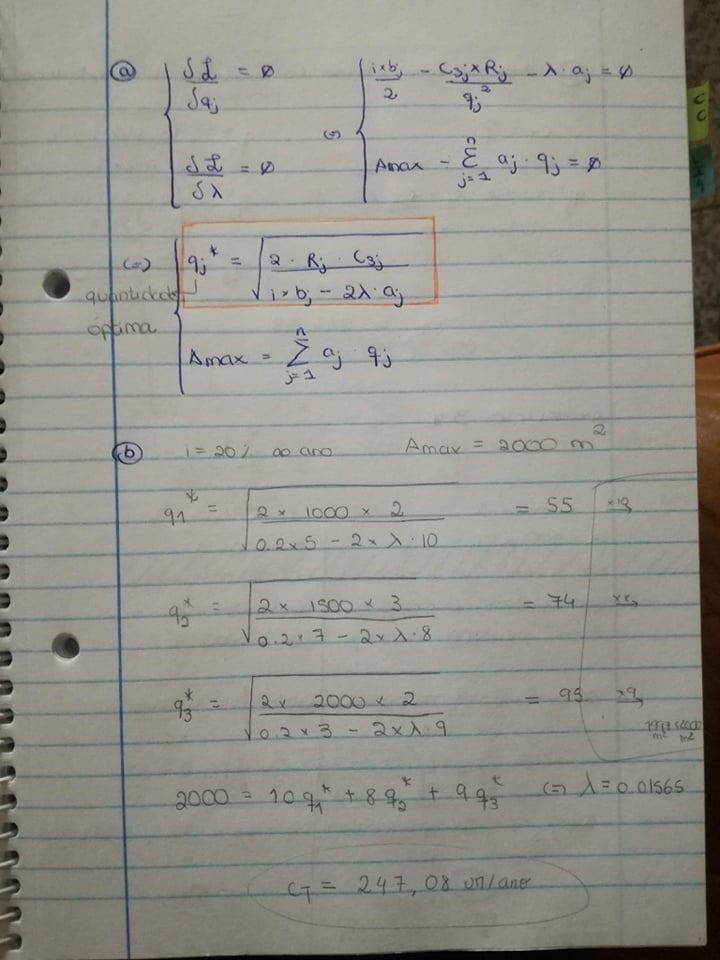 a) { δℒ/δqj = ∅ (=) { i×bj/2 - C3j×Rj/qj² - λ·aj = ∅
δℒ/δλ = ∅ Amax - Σ(j=1, n) aj · qj = ∅
(=) { qj* = √(2 · Rj · C3j / i×bj - 2λ·aj)
quantidade
óptima
Amax = Σ(j=1, n) aj · qj
b) i = 20% ao ano Amax = 2000 m²
q1* = √(2 × 1000 × 2 / 0.2×5 - 2×λ·10) = 55 ×10
q2* = √(2 × 1500 × 3 / 0.2×7 - 2×λ·8) = 74
q3* = √(2 × 2000 × 2 / 0.2×3 - 2×λ·9) = 93 ×9
2000 = 10q1* + 8q2* + 9q3* (=) λ = 0.01565
CT = 247,08 um/ano